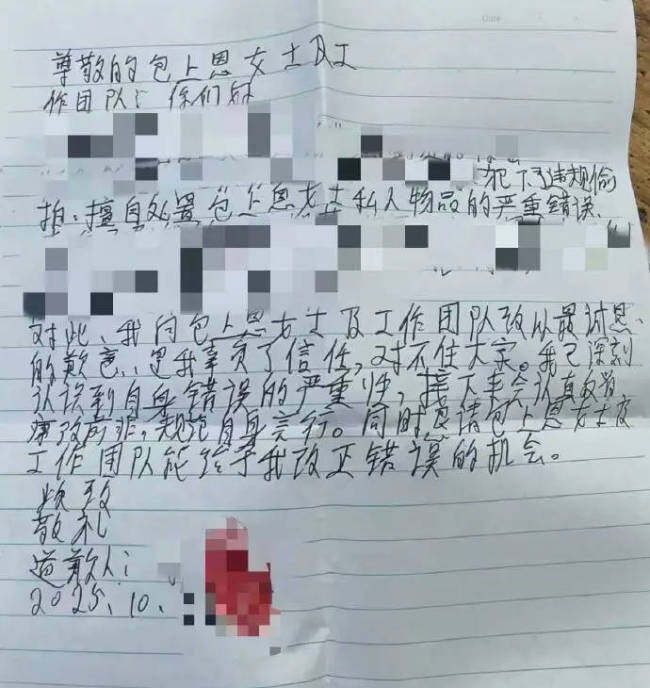 Date
尊敬的包上恩女士及工
作团队：你们好
犯下了违规偷
拍、擅自处置包上恩女士私人物品的严重错误、
对此、我向包上恩女士及工作团队致以最诚恳、
的歉意、是我辜负了信任，对不住大家。我已深刻
认识到自身错误的严重性，接下来会认真反省
痛改前非，规范自身言行。同时恳请包上恩女士及
工作团队能给予我改正错误的机会。
此致
敬礼
道歉人：
2025.10.